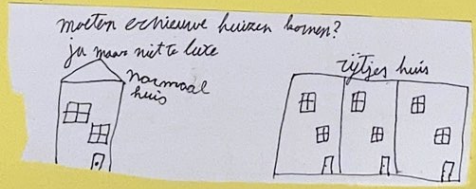 moeten er nieuwe huizen komen?
ja maar niet te luxe
normaal
huis
rijtjes huis